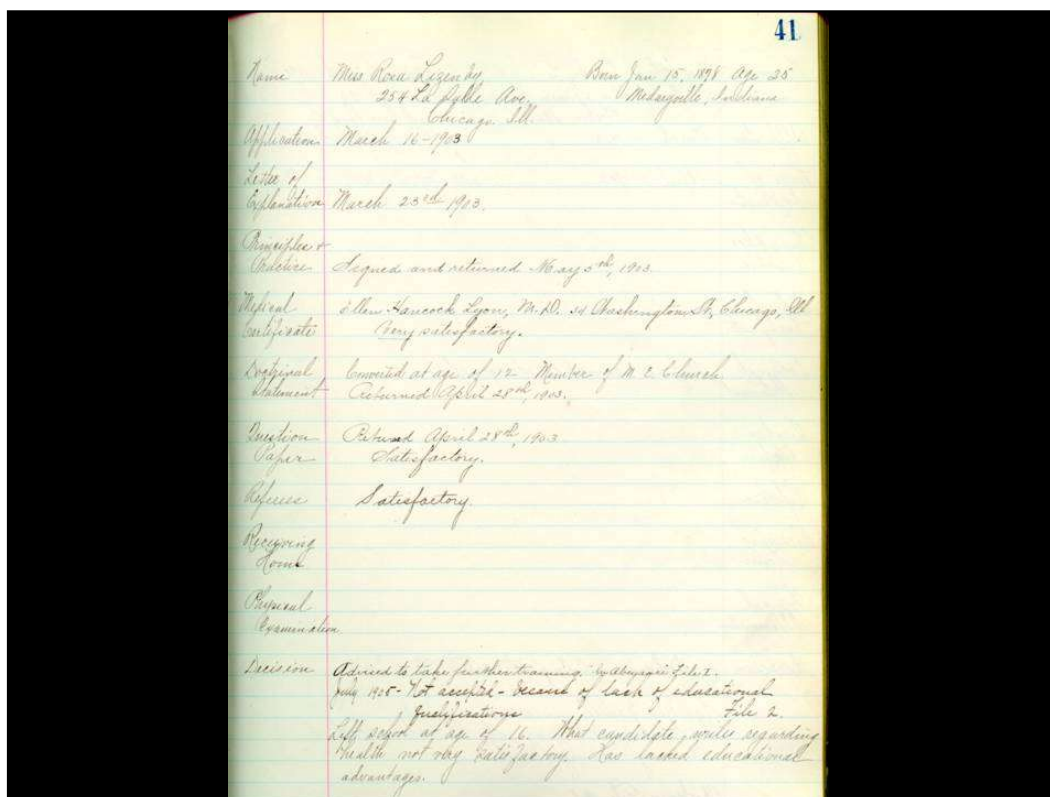 41
Name Miss Rosa Born Jan 15, 1878 Age 25
254 La Salle Ave. Medaryville, Indiana
Chicago Ill.
Application March 16-1903
Letter of
Explanation March 23rd 1903.
Principles &
Practice Signed and returned May 5th, 1903
Medical Ellen Hancock Lyon, M.D. 34 Washington St, Chicago, Ill
Certificate Very satisfactory.
Doctrinal Converted at age of 12 Member of M E Church
Statement Returned April 28th, 1903.
Question Returned April 28th, 1903
Paper Satisfactory.
Referees Satisfactory.
Receiving
Home
Physical
Examination
Decision Advised to take further training, File 1.
July 1905 - Not accepted - because of lack of educational
qualifications File 2.
Left school at age of 16. What candidate writes regarding
health not very satisfactory. Has lacked educational
advantages.